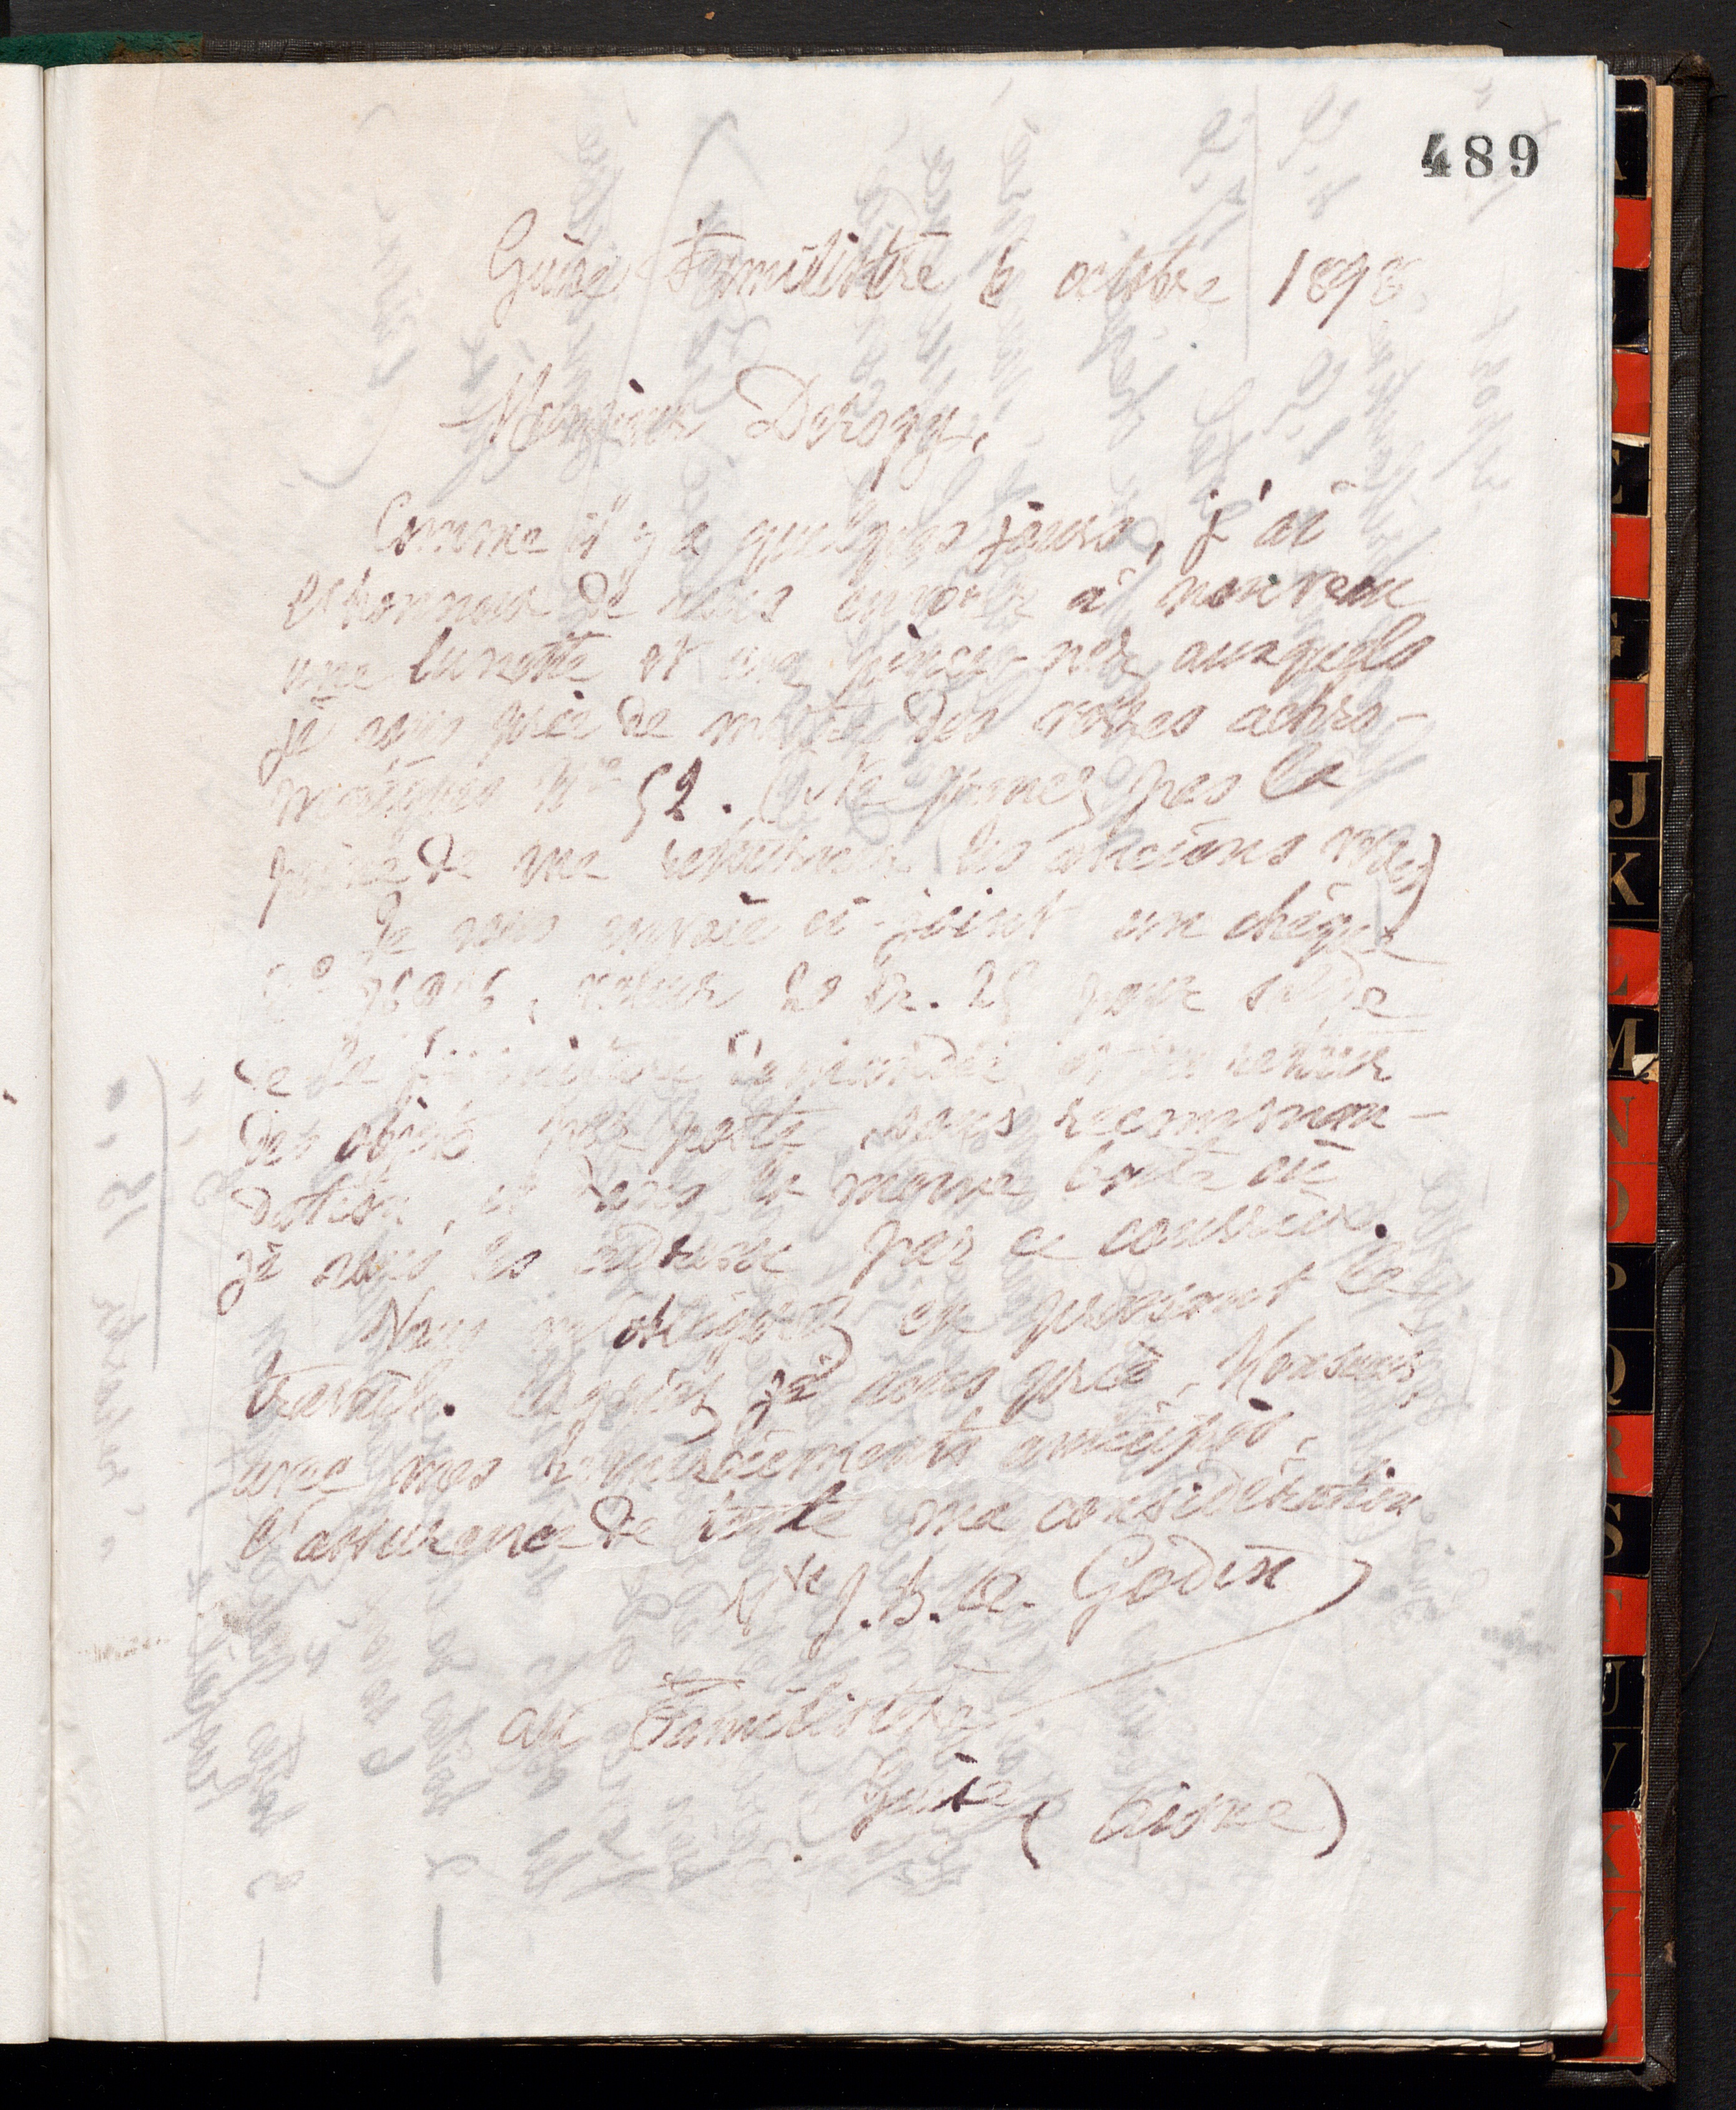 489
Guise Familistère 6 octobre 1898
Monsieur Derogy,
Comme il y a quelques jours, j'ai
l'honneur de vous envoyer à nouveau
une lunette et un pince-nez auxquels
je vous prie de mettre des verres achro-
matiques N° 52. (Ne prenez pas la
peine de me retourner les anciens verres)
Je vous envoie ci-joint un chèque
valeur 20 fr. 25 pour solde
de la fourniture demandée et du retour
des objets par poste, sous recomman-
dation, et dans la même boîte où
je vous les adresse par ce courrier.
Vous m'obligerez en pressant le
travail. Agréez, je vous prie, Monsieur,
avec mes remerciements anticipés,
l'assurance de toute ma considération
Vve J. B. A. Godin
au Familistère
Guise (Aisne)